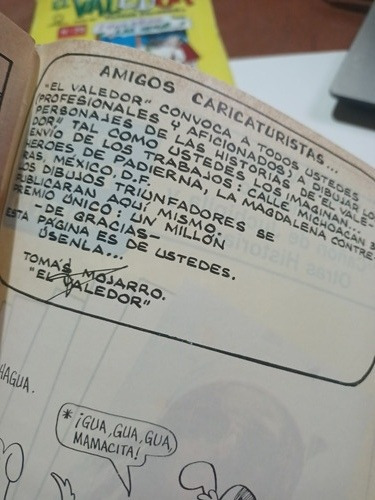 EL VALEDOR
AMIGOS CARICATURISTAS...
"EL VALEDOR" CONVOCA A TODOS USTEDES
(PROFESIONALES Y AFICIONADOS) A DIBUJAR LOS
PERSONAJES DE LAS HISTORIAS DE EL VALE-
DOR TAL COMO USTEDES LOS IMAGINAN...
ENVÍO DE LOS TRABAJOS: CALLE MICHOACÁN 3
HEROES DE PADIERNA, LA MAGDALENA CONTRE-
RAS, MEXICO, D.F.
LOS DIBUJOS TRIUNFADORES SE
PUBLICARAN AQUÍ MISMO.
PREMIO ÚNICO: UN MILLÓN
-DE GRACIAS-
ESTA PÁGINA ES DE USTEDES.
ÚSENLA...
TOMÁS MOJARRO.
"EL VALEDOR"
HAGUA.
* ¡GUA, GUA, GUA,
MAMACITA!